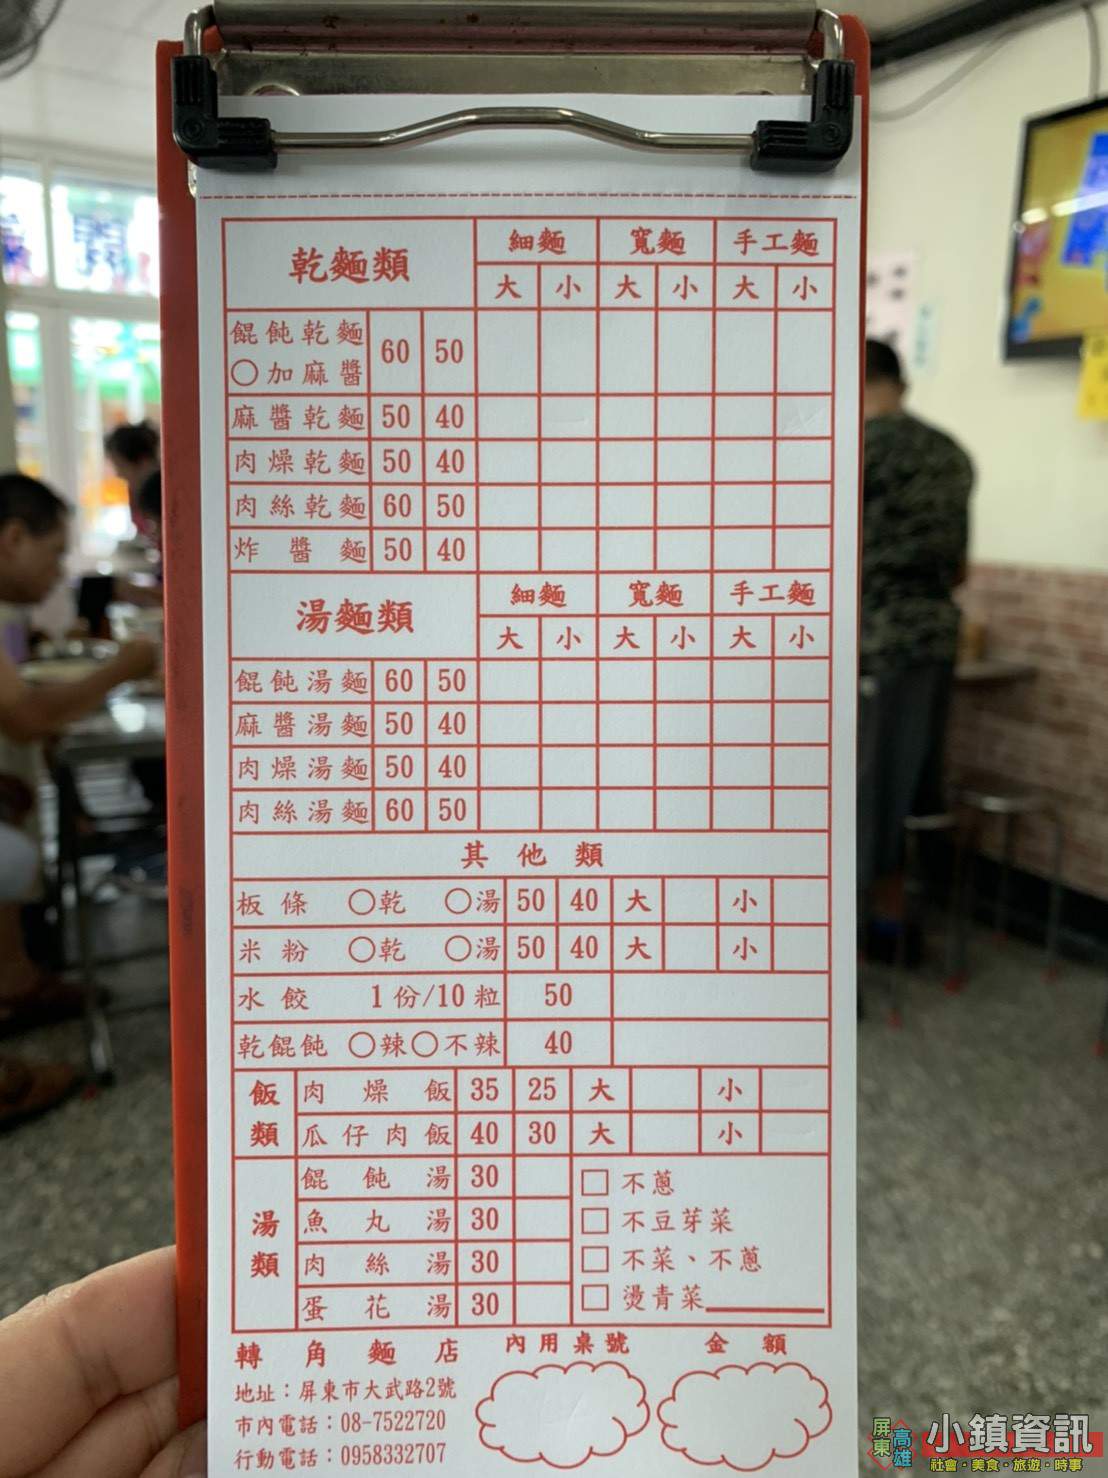 乾麵類 細麵 寬麵 手工麵
大 小 大 小 大 小
餛飩乾麵 60 50
○加麻醬
麻醬乾麵 50 40
肉燥乾麵 50 40
肉絲乾麵 60 50
炸醬麵 50 40
湯麵類 細麵 寬麵 手工麵
大 小 大 小 大 小
餛飩湯麵 60 50
麻醬湯麵 50 40
肉燥湯麵 50 40
肉絲湯麵 60 50
其他類
板條 ○乾 ○湯 50 40 大 小
米粉 ○乾 ○湯 50 40 大 小
水餃 1份/10粒 50
乾餛飩 ○辣○不辣 40
飯類
肉燥飯 35 25 大 小
瓜仔肉飯 40 30 大 小
湯類
餛飩湯 30
魚丸湯 30
肉絲湯 30
蛋花湯 30
□ 不蔥
□ 不豆芽菜
□ 不菜、不蔥
□ 燙青菜
轉角麵店 內用桌號 金額
地址：屏東市大武路2號
市內電話：08-7522720
行動電話：0958332707
屏東高雄 小鎮資訊
社會·美食·旅遊·時事